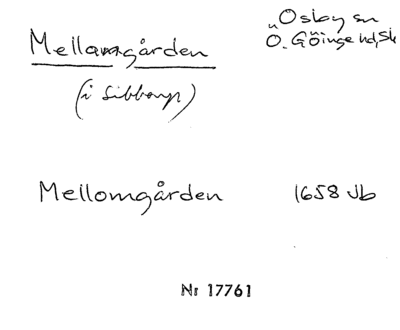 Mellangården
Osby sn
Ö. Göinge hd, Sk
(i Sibbarp)
Mellomgården 1658 Jb
Nr 17761